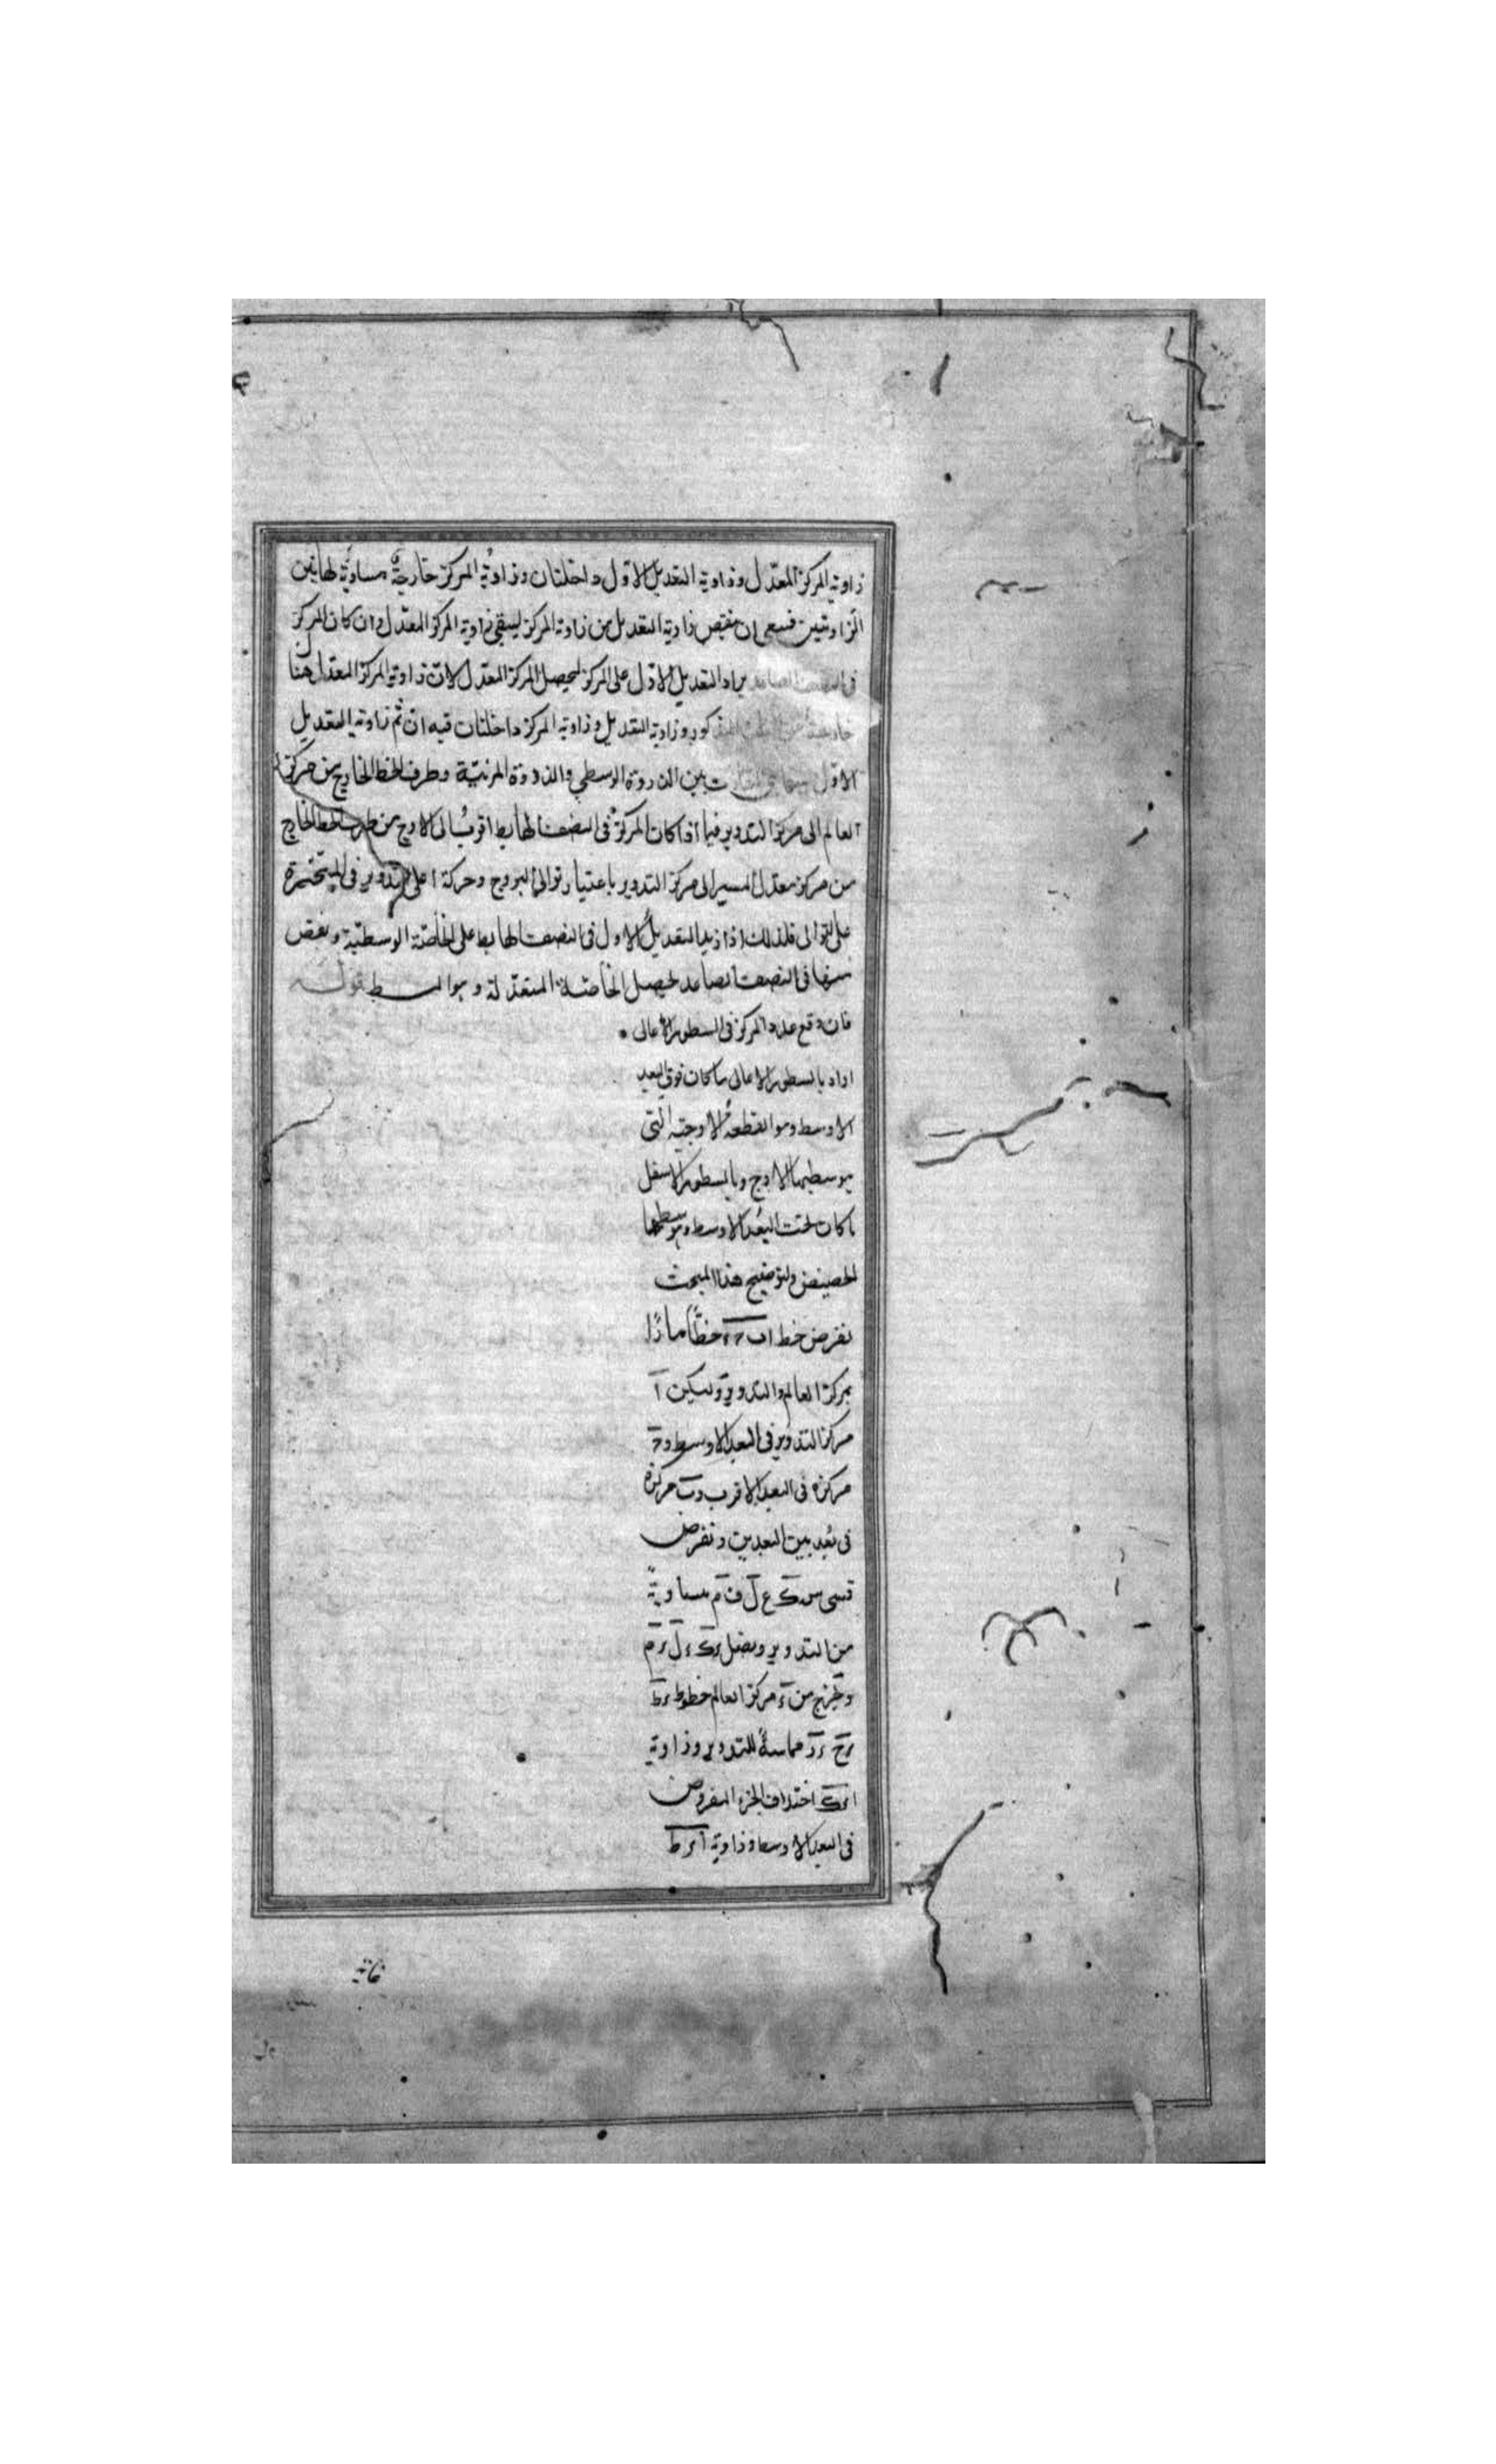 زاوية المركز المعدّل وزاوية التعديل الاول داخلتان وزاويةُ المركز خارجةٌ مساويةٌ لهاتين
الزاويتين فينبغى ان ينقص زاوية التعديل من زاوية المركز ليبقى زاوية المركز المعدّل وان كان المركز
فى النصف الصاعد يزاد التعديل الاول على المركز ليحصل المركز المعدّل لانّ زاوية المركز المعدل هنا
خارجة عن المثلث المذكور وزاوية التعديل وزاوية المركز داخلتان فيه ان ثم زاوية التعديل
الاول بين الذروة الوسطى والذروة المرئيّة وطرف الخط الخارج من مركز
العالم الى مركز التدوير فيما اذا كان المركزُ فى النصف الهابط اقربُ الى الاوج من طرف الخط الخارج
من مركز معدل المسير الى مركز التدوير باعتبار توالى البروج وحركة اعلى التدوير فى المتحيّرة
على التوالى فلذلك اذا زيد التعديلُ الاول فى النصف الهابط على الخاصّة الوسطيّة ونقص
منها فى النصف الصاعد يحصل الخاصّة المتعدّلة وهو المط قوله
فان وقع عدد المركز فى السطور الاعالى
اراد بالسطور الاعالى ما كان فوق البعد
الاوسط وهو القطعة الاوجيّه التى
يوسطها الاوج وبالسطور الاسفل
ما كان تحت البُعد الاوسط ويوسطها
الحضيض ولتوضيح هذا المبحث
نفرض خط اب ح ء خطًّا مارًّا
بمركز العالم والتدوير وليكن ا
مركز التدوير فى البعد الاوسط و ح
مركزه فى البعد الاقرب و ب مركزه
فى بُعد بين البعدين ونفرض
قسى س ك ع ل ف م متساويةً
من التدوير ونصل ء ك ء ل ء م
ونخرج من ء مركز العالم خطوط ء ط
ء ح ء ر مماسةً للتدوير وزاوية
ا ء ك اختلاف الجزء المفروض
فى البعد الاوسط وزاوية ا ء ط